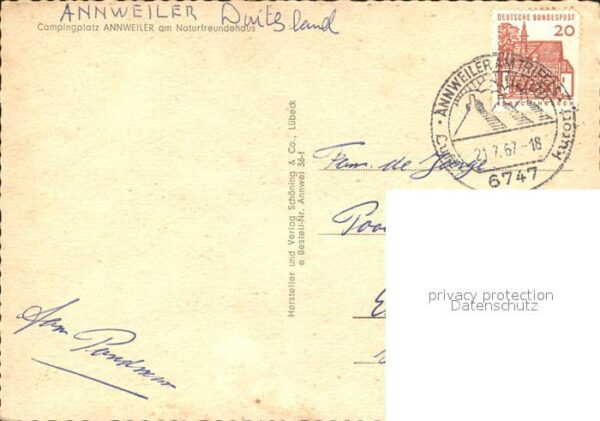 ANNWEILER Duitsland
Campingplatz ANNWEILER am Naturfreundehaus
DEUTSCHE BUNDESPOST
20
ANNWEILER AM TRIFELS
21.7.67-18
Kurort
6747
Fam. de Jonge
Hersteller und Verlag Schöning & Co., Lübeck
e Bestell-Nr. Annwei 36-f
privacy protection
Datenschutz
Fam